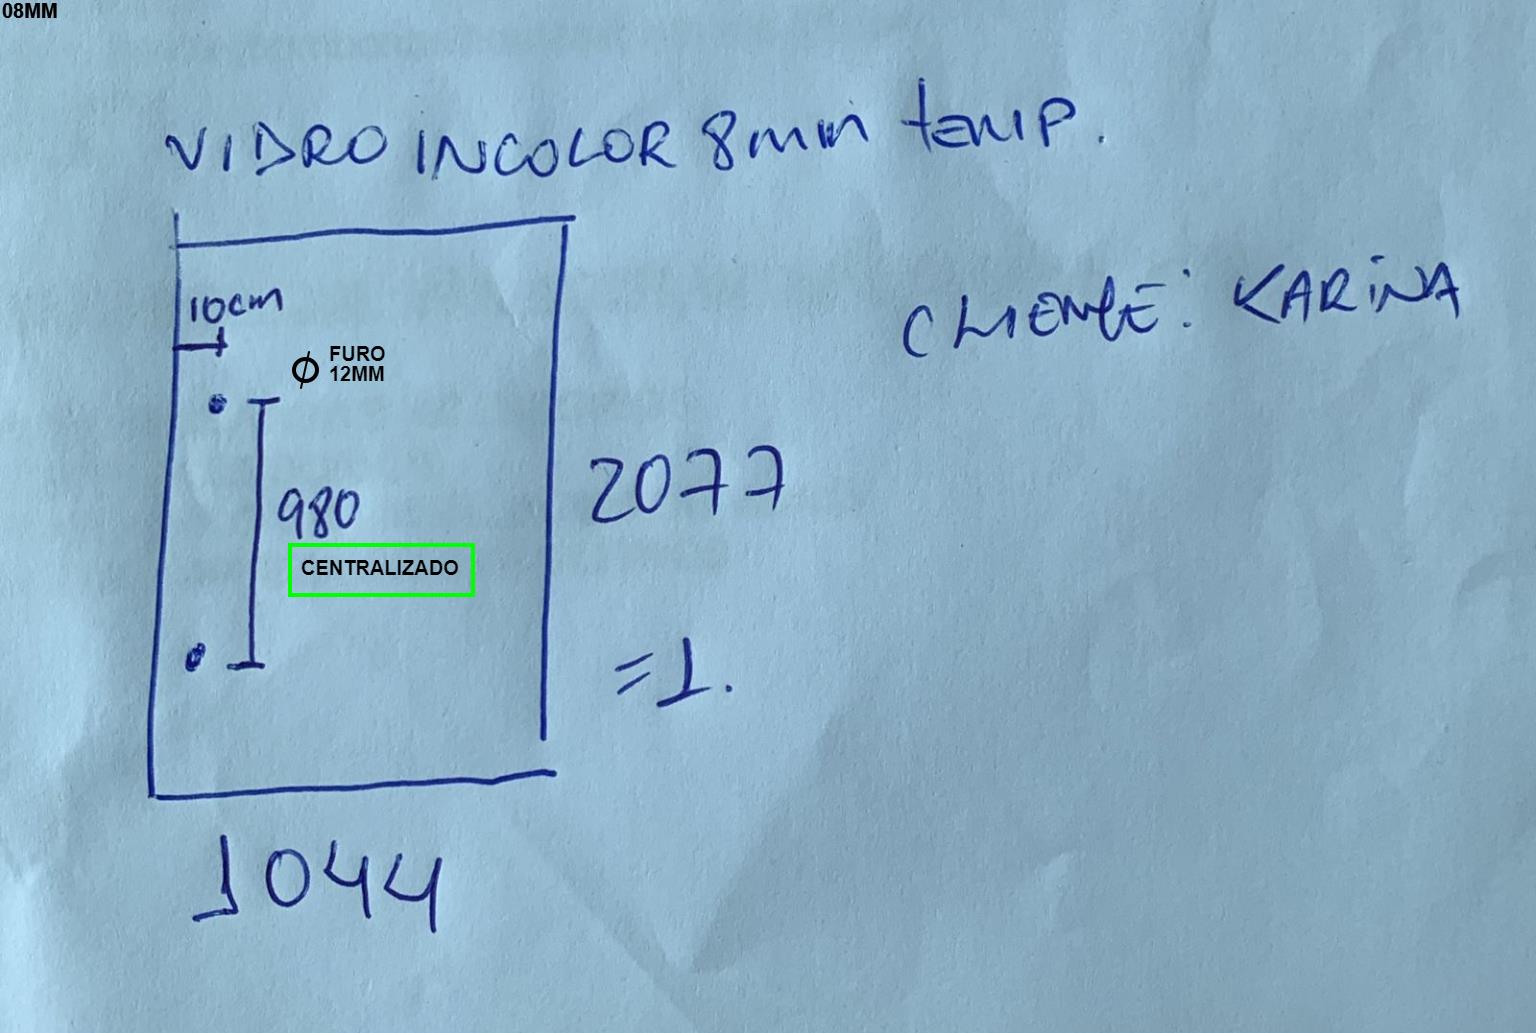 08MM
VIDRO INCOLOR 8mm temp.
10cm
CLIENTE: KARINA
FURO
12MM
2077
980
CENTRALIZADO
=1.
1044